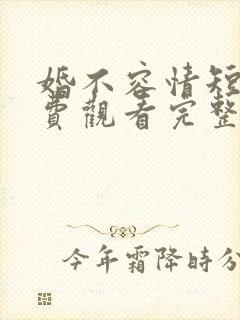 婚不容情短
費觀看完整
今年霜降時分